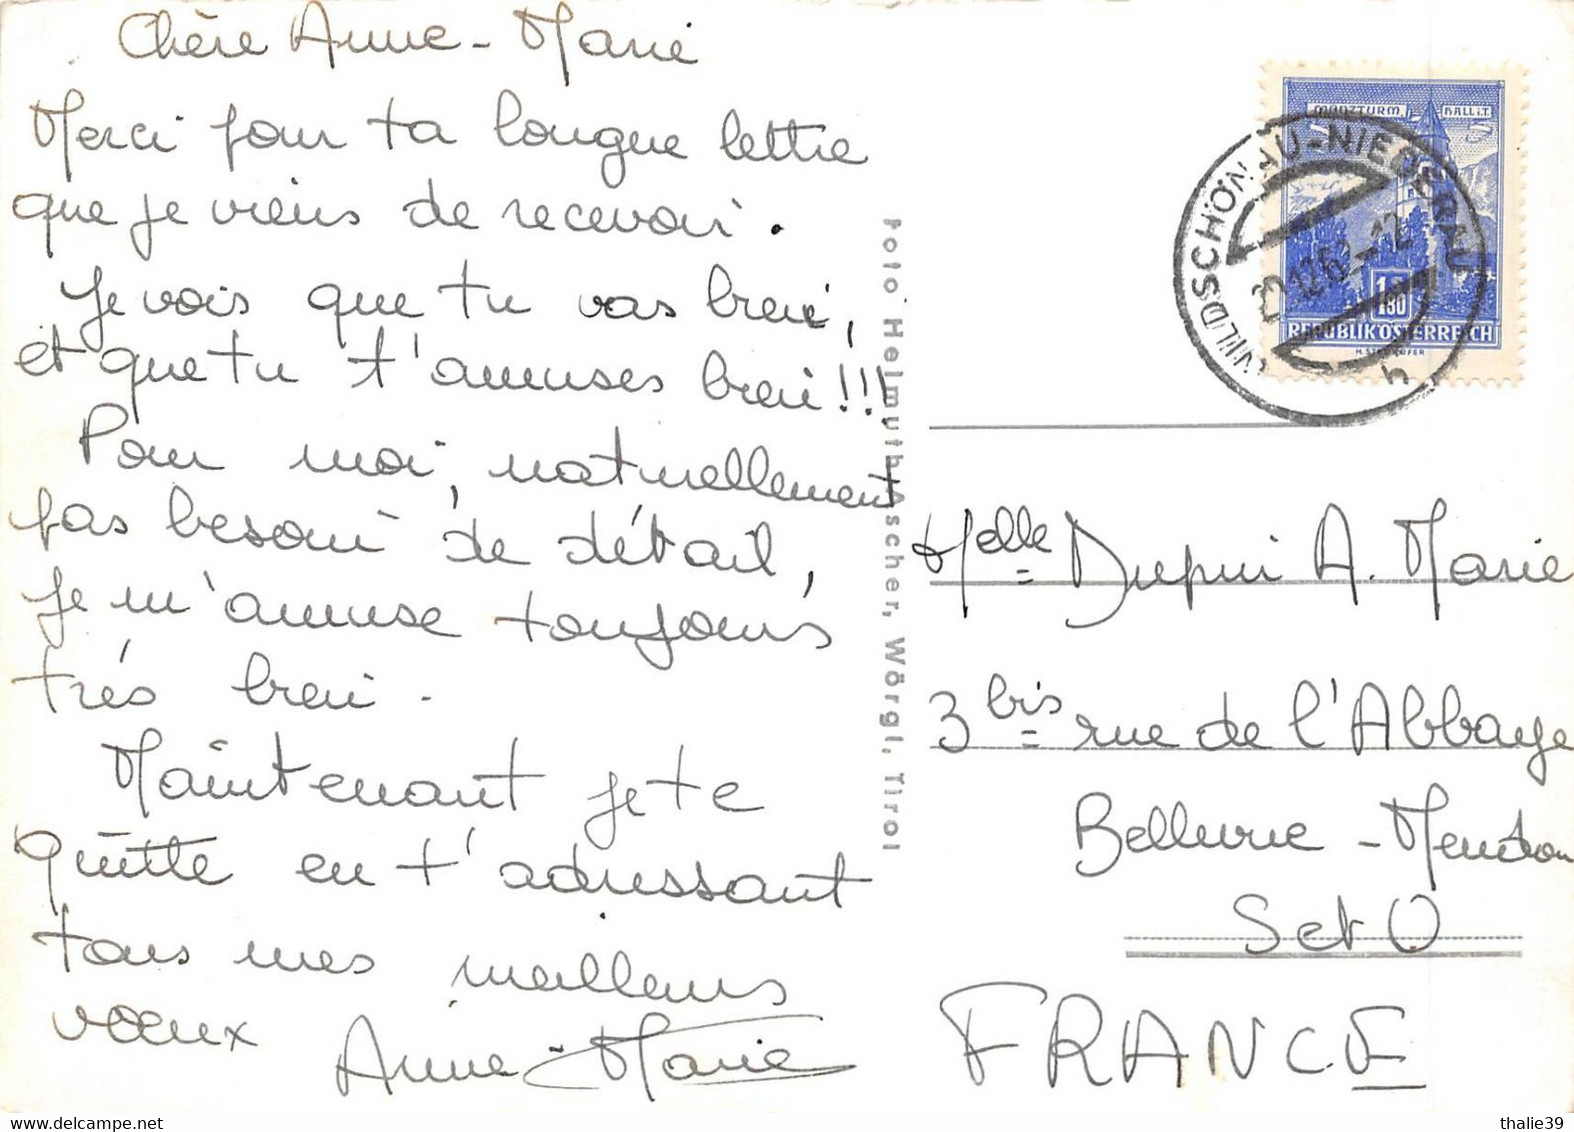 Chère Anne-Marie
Merci pour ta longue lettre
que je viens de recevoir.
Je vois que tu vas bien,
et que tu t'amuses bien !!!
Pour moi, naturellement
pas besoin de détail,
je m'amuse toujours
très bien.
Maintenant je te
quitte en t'adressant
tous mes meilleurs
vœux Anne-Marie
Foto Helmuth Ascher, Wörgl, Tirol
MÜNZTURM, HALL i.T.
WILDSCHÖNAU-NIEDERAU
1.80
REPUBLIK ÖSTERREICH
h
Melle Dupui A. Marie
3 bis rue de l'Abbaye
Bellevue - Meudon
S et O
FRANCE
thalie39